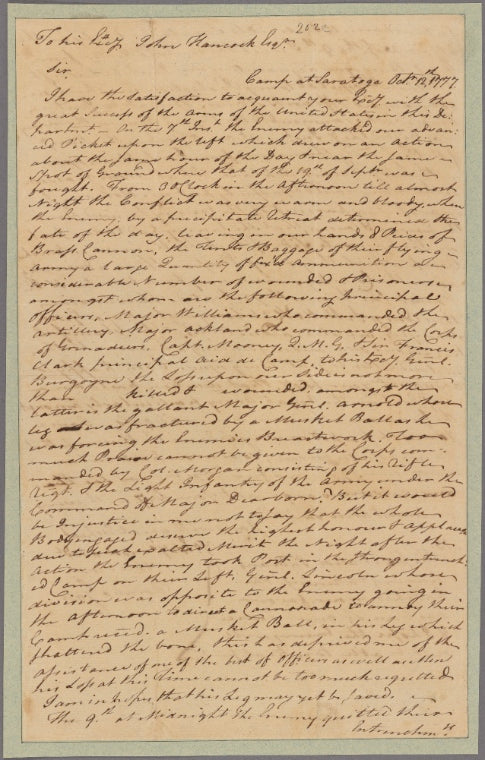 202
To his Excy John Hancock Esqr.
Sir.
Camp at Saratoga Octr. 12th 1777
I have the satisfaction to acquaint your Excy with the
great Success of the Arms of the United States in this De-
partmt - On the 7th Inst. the Enemy attacked our advan-
ced Picket upon the left which drew on an Action
about the same hour of the Day & near the same
Spot of Ground where that of the 19th of Septr was
fought. From 3 OClock in the Afternoon till almost
Night the Conflict was very warm and bloody, when
the Enemy, by a precipitate retreat determined the
fate of the day, leaving in our hands 8 Pieces of
Brass Cannon, the Tents & Baggage of their flying
Army a large Quantity of fixt Ammunition a
considerable Number of wounded & Prisoners
amongst whom are the following principal
Officers, Major Williams who commanded the
artillery. Major Ackland who commanded the Corps
of Grenadiers, Capt. Mooney, D.Q.M.G. & Sir Francis
Clark principal Aid de Camp to his Excy Genl.
Burgoyne the Loss upon our side is not more
than killed & wounded, amongst the
latter is the gallant Major Genl. Arnold whose
leg was fractured by a Musket Ball as he
was forcing the Enemies Breastwork. Too
much Praise cannot be given to the Corps com-
manded by Col. Morgan consisting of his Rifle
Regt. & the Light Infantry of the Army under the
Command of Major Dearborn, But it would
be Injustice in me not to say that the whole
Body engaged deserve the highest honour & Applause
due to such exalted Merit the Night after the
Action the Enemy took Post in the strong entrench-
ed Camp on their Left, Genl. Lincoln whose
division was opposite to the Enemy going in
the Afternoon to direct a Cannonade to annoy their
Camp recd. a Musket Ball, in his leg which
shattered the bone, this has deprived me of the
assistance of one of the best of Officers as well as Men
his Loss at this Time cannot be too much regretted
I am in hopes that his leg may yet be saved.
The 9th at Midnight the Enemy quitted their
Entrenchmts